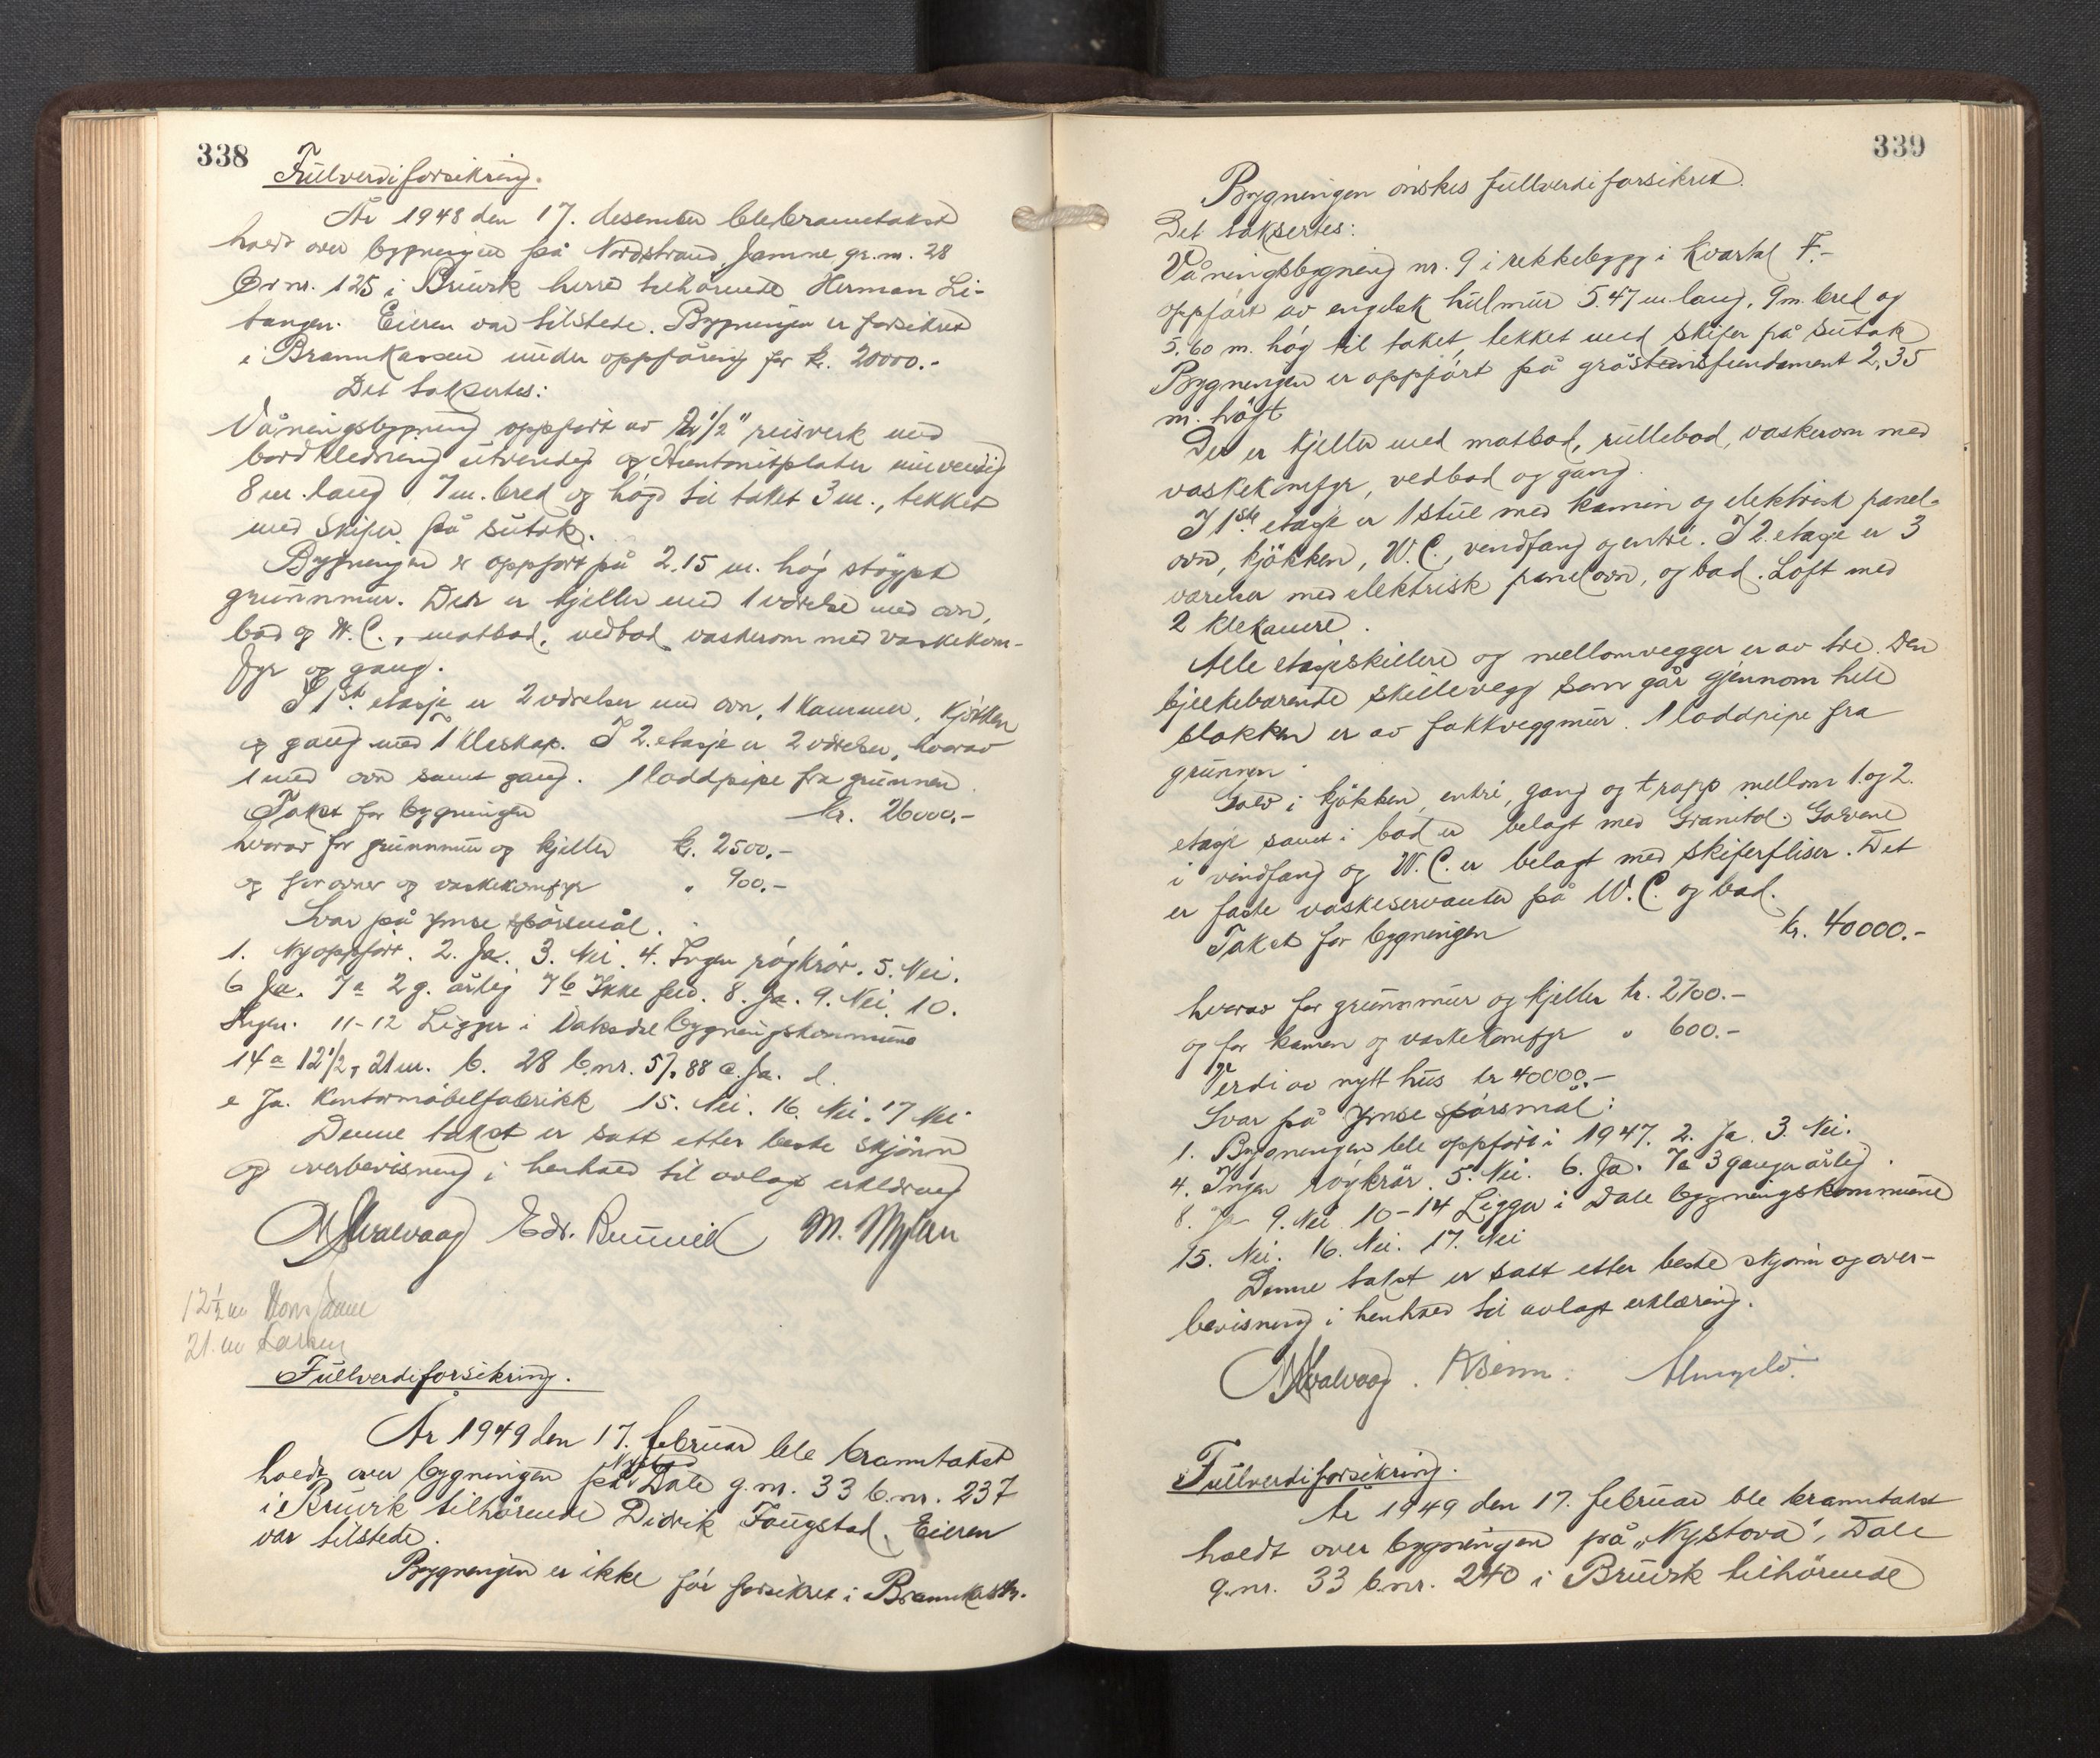 338
Fullverdiforsikring.
År 1948 den 17. desember ble branntakst
holdt over bygningen på Nordstrand, Jamne gr.nr. 28
Br nr. 125 i Bruvik herred tilhörende Herman Li-
tangen. Eieren var tilstede. Bygningen er forsikret
i Brannkassen under oppföring for kr. 20000.-
Det taksertes:
Våningsbygning oppfört av 2 1/2" reisverk med
bordkledning utvendig og Huntonitplater innvendig
8 m. lang 7 m. bred og högd til taket 3 m., tekket
med skifer på sutak.
Bygningen er oppfört på 2.15 m. hög stöypt
grunnmur. Der er kjeller med 1 værelse med ovn,
bad og W.C., matbod, vedbod vaskerom med vaskekom-
fyr og gang.
I 1ste etasje er 2 værelser med ovn, 1 kammer, kjökken
og gang med 1 kleskap. I 2. etasje er 2 værelser, hvorav
1 med ovn samt gang. 1 loddpipe fra grunnen.
Takst for bygningen kr. 26000.-
hvorav for grunnmur og kjeller kr. 2500.-
og for ovner og vaskekomfyr " 900.-
Svar på ymse spörsmål.
1. Nyoppfört. 2. Ja. 3. Nei. 4. Ingen röykrör. 5. Nei.
6 Ja. 7a 2 g. årlig 7b Ikke feid. 8. Ja. 9. Nei. 10.
Ingen. 11-12 Ligger i Vaksdal bygningskommune
14a 12 1/2, 21 m. b. 28 b.nr. 57, 88 c. Ja. d.
e Ja. Kontormöbelfabrikk 15. Nei. 16. Nei. 17 Nei
Denne takst er satt etter beste skjönn
og overbevisning i henhold til avlagt erklæring
M Kvalvaag M. Myhren
12 1/2 m
21. m
Fullverdiforsikring.
År 1949 den 17. februar ble branntakst
holdt over bygningen på Dale g.nr. 33 b.nr. 237
i Bruvik tilhörende Didrik Fougstad. Eieren
var tilstede.
Bygningen er ikke för forsikret i Brannkassen.
339
Bygningen önskes fullverdiforsikret.
Det taksertes:
Våningsbygning nr. 9 i rekkebygg i Kvartal F.-
oppfört av engelsk hulmur 5.47 m lang, 9 m. bred og
5.60 m. hög til taket, tekket med skifer på sutak
Bygningen er oppfört på gråsteinsfundament 2,35
m. högt
Der er kjeller med matbod, rullebod, vaskerom med
vaskekomfyr, vedbod og gang.
I 1ste etasje er 1 stue med kamin og elektrisk panel-
ovn, kjökken, W.C., vindfang og entré. I 2. etasje er 3
værelser med elektrisk panelovn, og bad. Loft med
2 klekammere.
Alle etasjeskillere og mellomvegger er av tre. Den
bjelkebærende skillevegg som går gjennom hele
blokken er av fakkveggmur. 1 loddpipe fra
grunnen.
Golv i kjökken, entré, gang og trapp mellom 1. og 2.
etasje samt i bad er belagt med Granitol. Golvene
i vindfang og W.C. er belagt med skiferfliser. Det
er faste vaskeservanter på W.C. og bad.
Takst for bygningen kr. 40000.-
hvorav for grunnmur og kjeller kr. 2700.-
og for kamin og vaskekomfyr " 600.-
Verdi av nytt hus kr 40000.-
Svar på ymse spörsmål:
1. Bygningen ble oppfört i 1947. 2. Ja. 3. Nei.
4. Ingen röykrör. 5. Nei. 6. Ja. 7a 3 ganger årlig.
8. Ja 9. Nei 10-14 Ligger i Dale bygningskommune
15. Nei. 16. Nei. 17. Nei
Denne takst er satt etter beste skjönn og over-
bevisning i henhold til avlagt erklæring.
M Kvalvaag.
Fullverdiforsikring.
År 1949 den 17. februar ble branntakst
holdt over bygningen på "Nystova", Dale
g.nr. 33 b.nr. 240 i Bruvik tilhörende